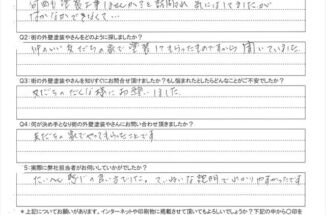 何回も塗装工事しませんか？と訪問され気にはしてましたが
なかなかできなくて・・・
Q2：街の外壁塗装やさんをどのように探しましたか？
仲のいい友だちの家で塗装してもらったものですから聞いていました
Q3：街の外壁塗装やさんを知りすぐにお問合せ頂けましたか？もし悩まれたとしたらどんなことがご不安でしたか？
友だちのだんな様にお願いしました
Q4：何が決め手となり街の外壁塗装やさんにお問い合わせ頂きましたか？
友だちの家でやってもらったことです
5：実際に弊社担当者がお伺いしていかがでしたか？
たいへん感じの良い方でした。ていねいな説明でわかりやすかったです
＊上記についてお願いがあります。インターネットや印刷物に掲載させて頂いてもよろしいでしょうか？下の中から〇印を